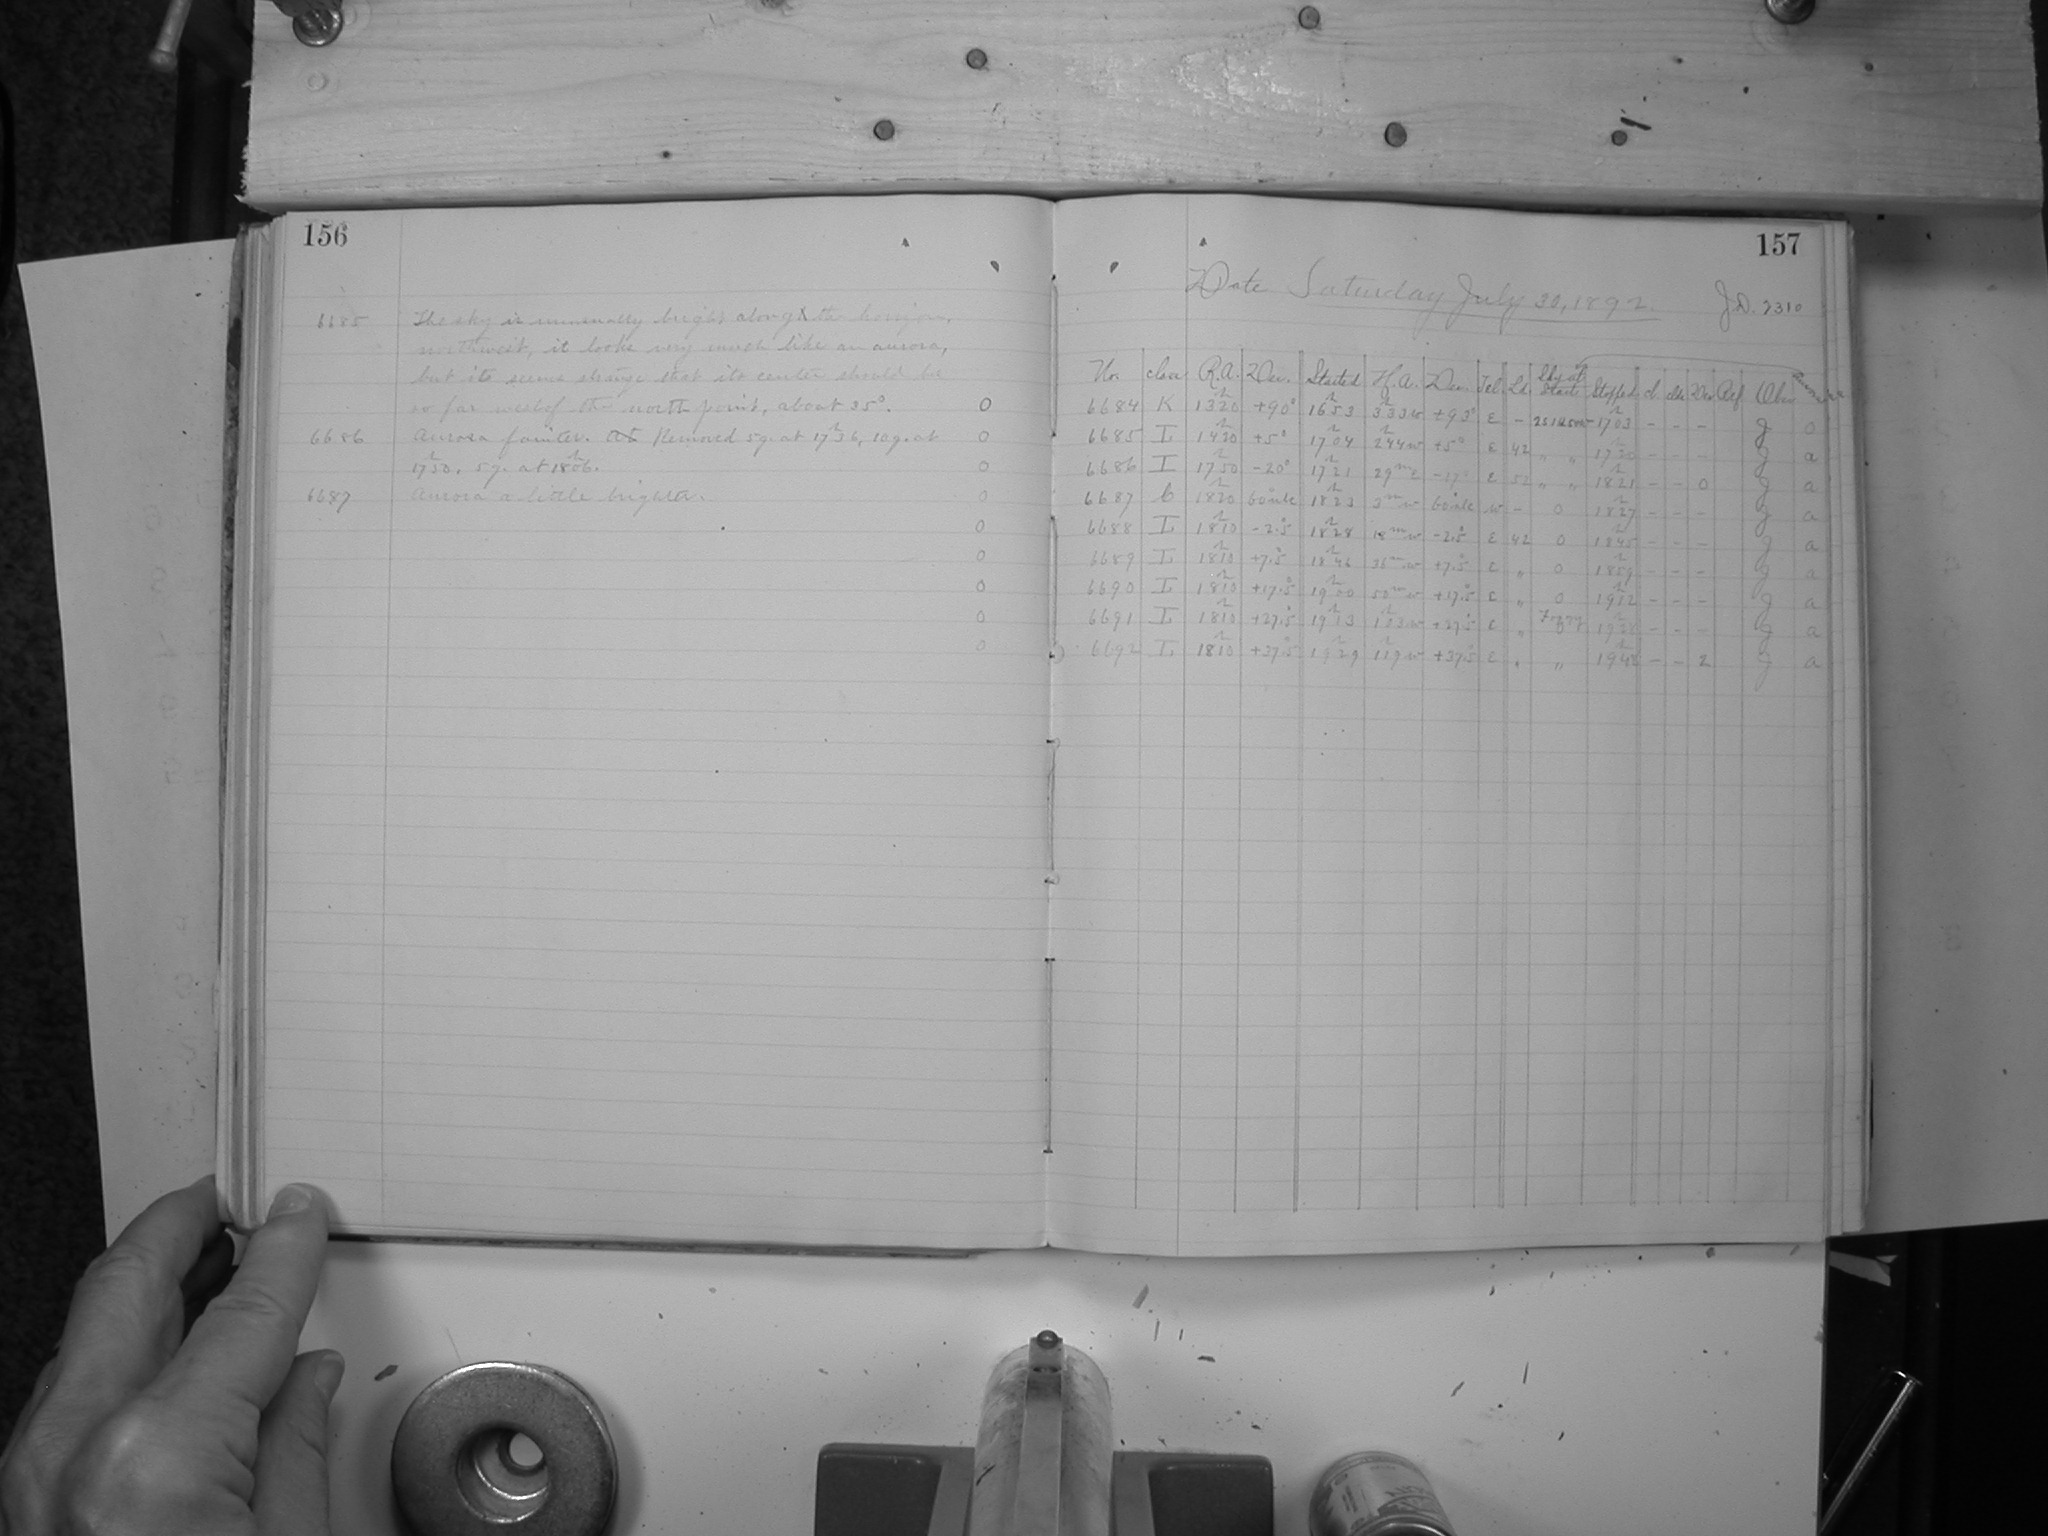 156
6685 The sky is unusually bright along the horizon,
northwest, it looks very much like an aurora,
but its seems strange that its center should be
so far west of the north point, about 35°. 0
6686 Aurora fainter. Removed 5g. at 17h36, 10g. at 0
17h50. 5g. at 18h06. 0
6687 Aurora a little brighter. 0
0
0
0
0
0
157
Date Saturday July 30, 1892. J.D. 2310
No. class R.A. Dec. Started H.A. Dec. Tel. Ld. Sky at Start Stopped cl. Dev Ref Obs
6684 K 13h20 +90° 16h53 3h33w +93° E - 17h03 - - - J 0
6685 I 14h20 +5° 17h04 2h44w +5° E 42 " " 17h20 - - - J a
6686 I 17h50 -20° 17h21 29mE -17° E 52 " " 18h21 - - 0 J a
6687 C 18h20 18h23 3mw w - 0 18h27 - - - J a
6688 I 18h10 -2°.5 18h28 18mw -2°.5 E 42 0 18h45 - - - J a
6689 I 18h10 +7°.5 18h46 36mw +7°.5 E " 0 18h59 - - - J a
6690 I 18h10 +17°.5 19h00 50mw +17°.5 E " 0 19h12 - - - J a
6691 I 18h10 +27°.5 19h13 1h03w +27°.5 E " Foggy 0 19h28 - - - J a
6692 I 18h10 +37°.5 19h29 1h19w +37°.5 E " " 19h46 - - 2 J a